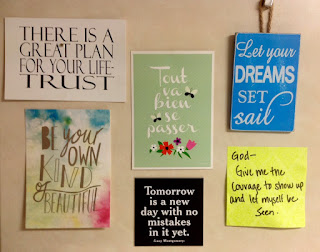 THERE IS A
GREAT PLAN
FOR YOUR LIFE-
TRUST
Tout
va
bien
se
passer
Let your
DREAMS
SET
sail
BE your
OWN
KIND
of
BEAUTIFUL
Tomorrow
is a new
day with no
mistakes
in it yet.
-Lucy Montgomery-
God-
Give me the
courage to show up
and let myself be
seen.